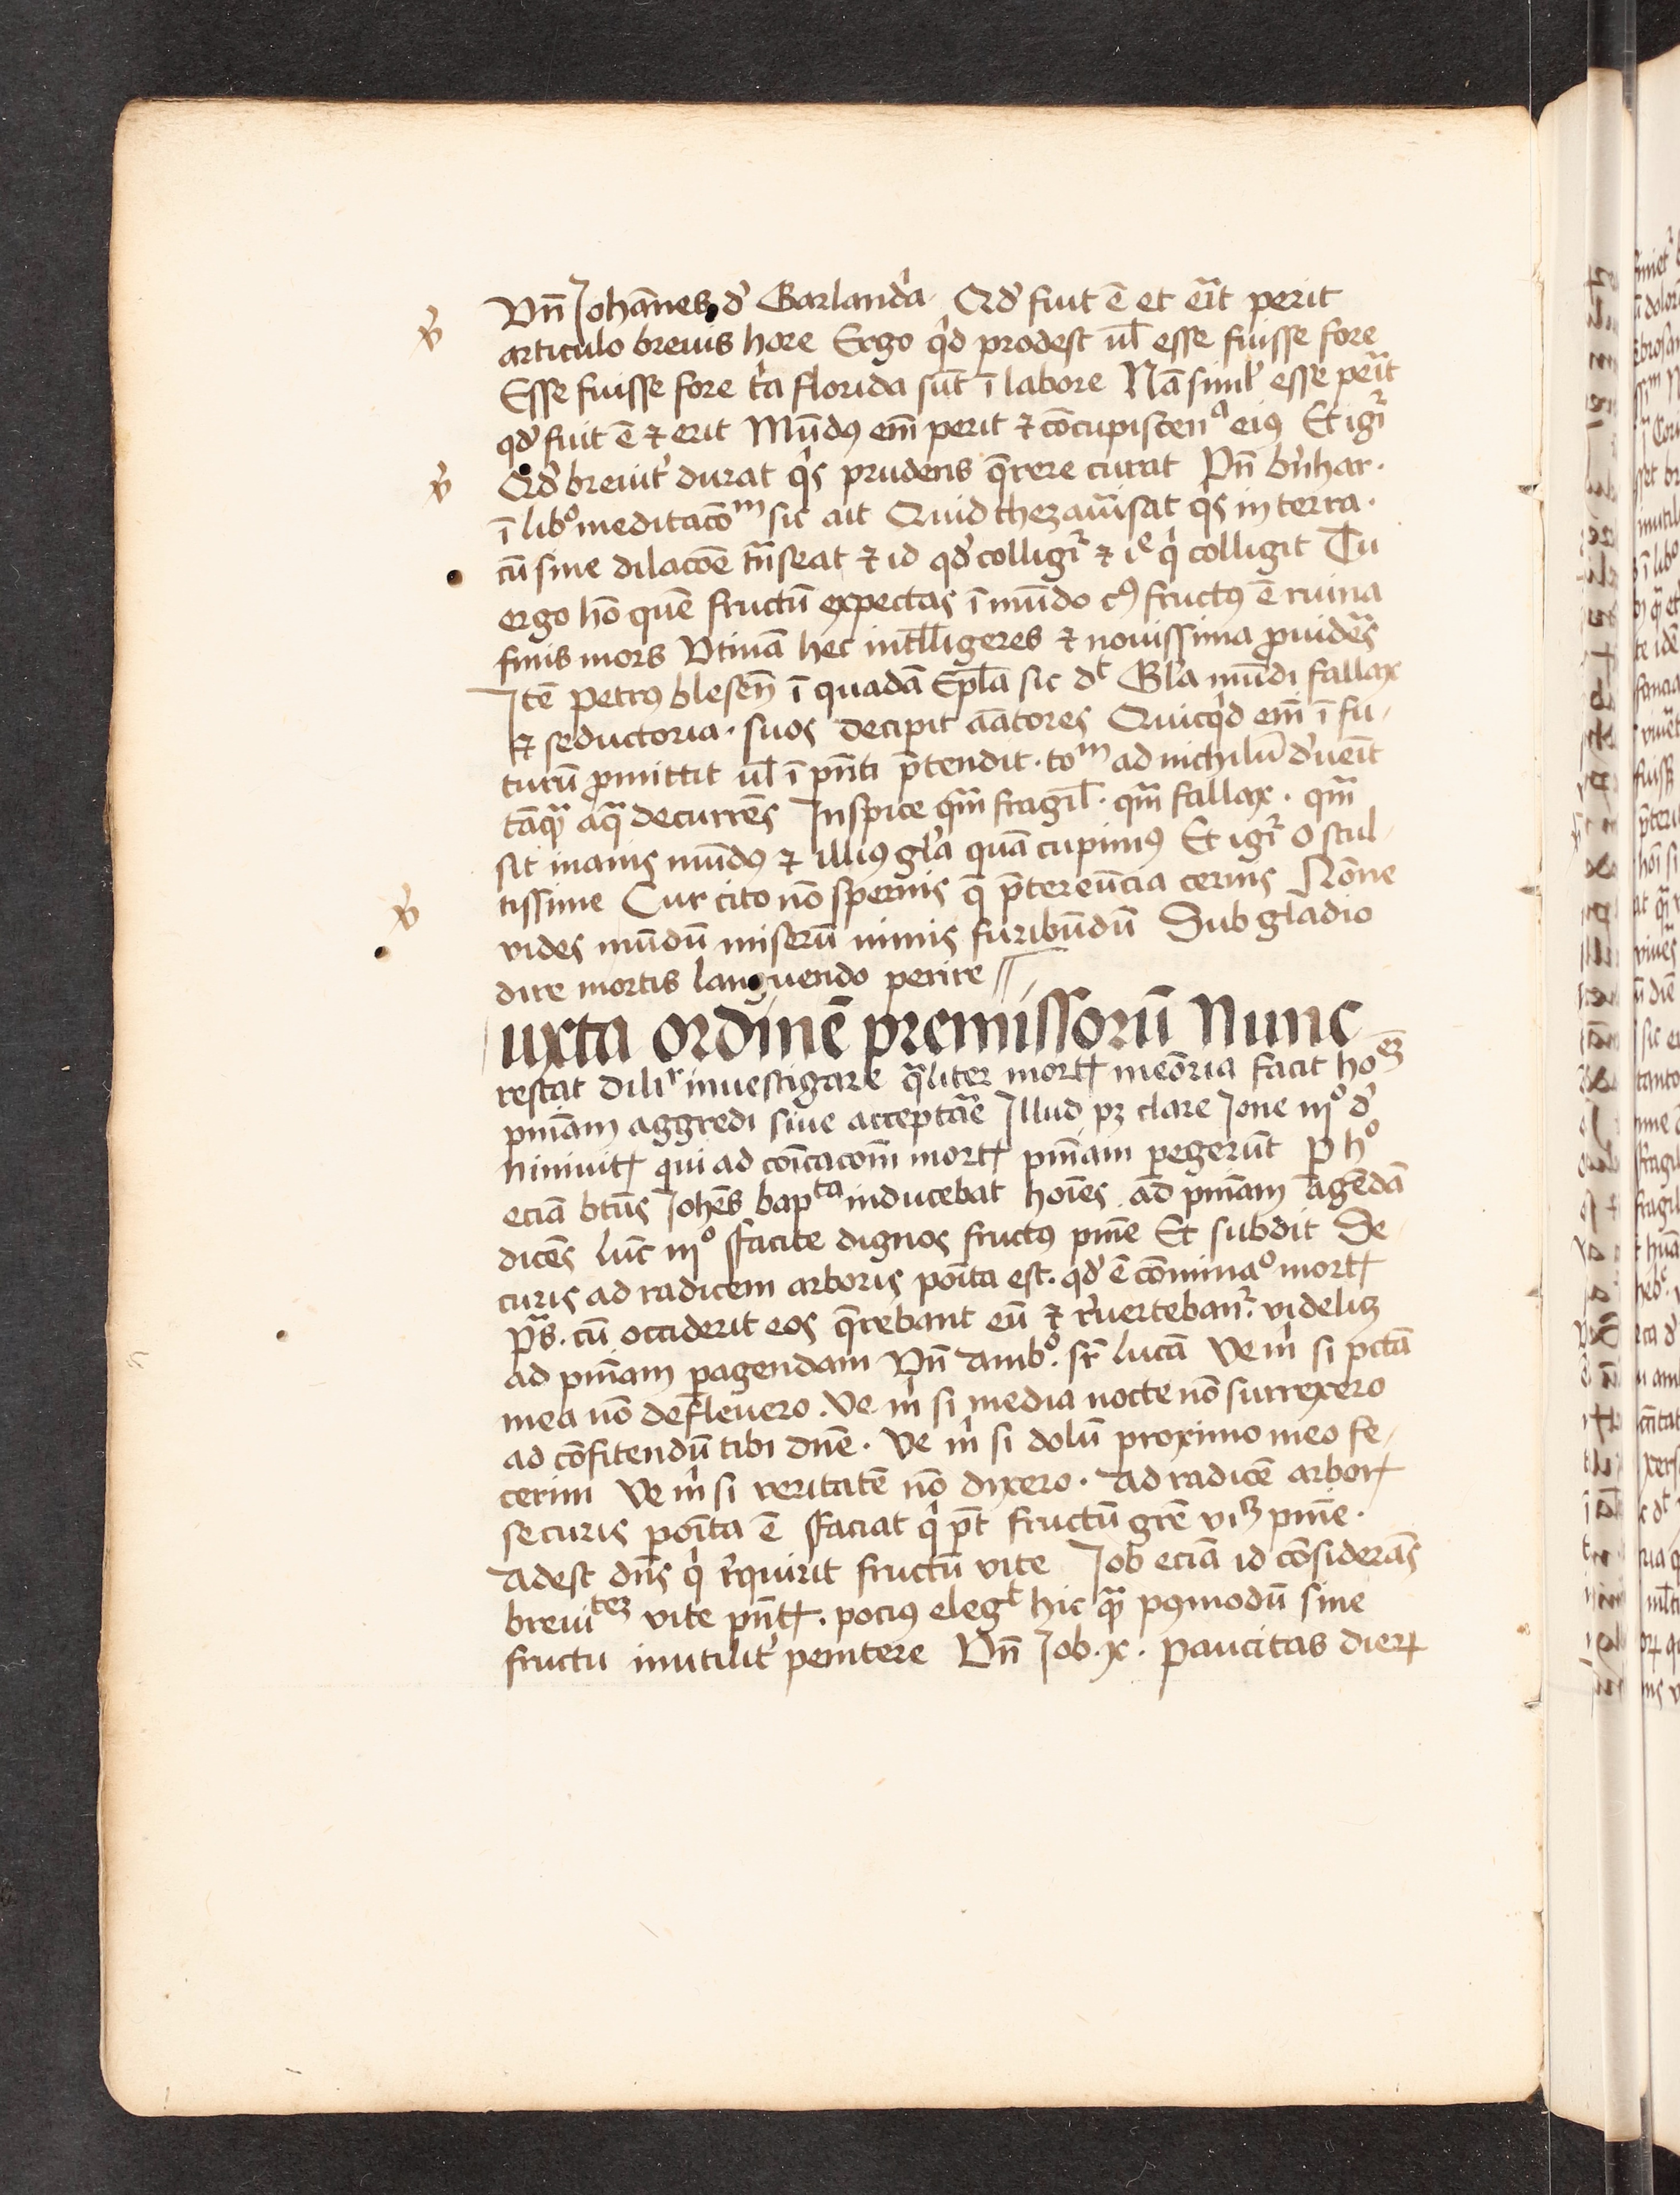 Vn̄ Johānes de Garlandia Qd' fuit ē et erit perit
articulo breuis hore Ergo qid prodest ul' esse fuisse fore
Esse fuisse fore tria florida sūt ī labore Nā simil' esse perit
qd' fuit ē ⁊ erit Mūdꝰ em̄ perit ⁊ cōcupiscenᵃ eiꝰ Et igr̄
Qd' breuit' durat qis prudens q̄rere curat Vn̄ b'nhar.
ī libᵒ meditacōᵐ sic ait Quid thezaurisat qis in terra.
cū sine dilacōe trāseat ⁊ id qd' colligiᵗ ⁊ iᵉ qi colligit Tu
ergo hō quē fructū expectas ī mūdo cꝰ fructꝰ ē ruina
finis mors Vtinā hec intelligeres ⁊ nouissima ꝓuideres
Jtē Petrꝰ blesen̄ ī quadā Ep̄la sic dᵗ Gl'a mūdi fallax
⁊ seductoria. suos decipit aātores Quicqid em̄ ī fu-
turū ꝓmittit ul' ī pn̄ti p̄tendit. toᵐ ad nichilū deueīt
tāqᵃ aqᵃ decurrēs Jnspice qᵃm fragil'. qᵃm fallax. qᵃm
sit inanis mūdꝰ ⁊ illiꝰ gl'a quā cupimꝰ Et igr̄ O stul-
tissime Cur cito nō spernis q̄ p̄tereūcia cernis Nōne
vides mūdū miserū nimis furibūdū Sub gladio
dire mortis languendo perire
iuxta ordinē premissorū Nunc
restat diliʳ inuestigare qᵃliter mortꝭ meōria facit hoᵉᶻ
pn̄iam aggredi siue acceptare Jllud pꝫ clare Jone iijᵒ de
niniuitꝭ qui ad cōīcacōm̄ mortꝭ pn̄iam pegerūt P hᵒ
eciā bt̄us Joh̄es bapᵗᵃ inducebat hoīes ad pn̄iam agēdā
dicēs Luc̄ iijᵒ ffacite dignos fructꝰ pn̄ie Et subdit Se-
curis ad radicem arboris poīta est. qd' ē cōminaᵒ mortꝭ
Pᵃs. cū occiderit eos q̄rebant eū ⁊ reuertebanᵗ. videlicꝫ
ad pn̄iam pagendam Vn̄ Ambᵒ. sr̄ lucā Ve mi si pctā
mea nō defleuero. Ve mi si media nocte nō surrexero
ad cōfitendū tibi dn̄e. Ve mi si dolū proximo meo fe-
cerim Ve mi si veritatē nō dixero. Ad radicē arborꝭ
securis poīta ē ffaciat qi pt̄ fructū grē pn̄ie.
Adest dn̄s qi requirit fructū vite Job eciā id cōsiderās
breuiᵗᵉᶻ vite pn̄tꝭ. pociꝰ elegᵗ hic qᵃ pꝰmodū sine
fructu inutilit' penitere Vn̄ Job. x. Paucitas dierꝝ